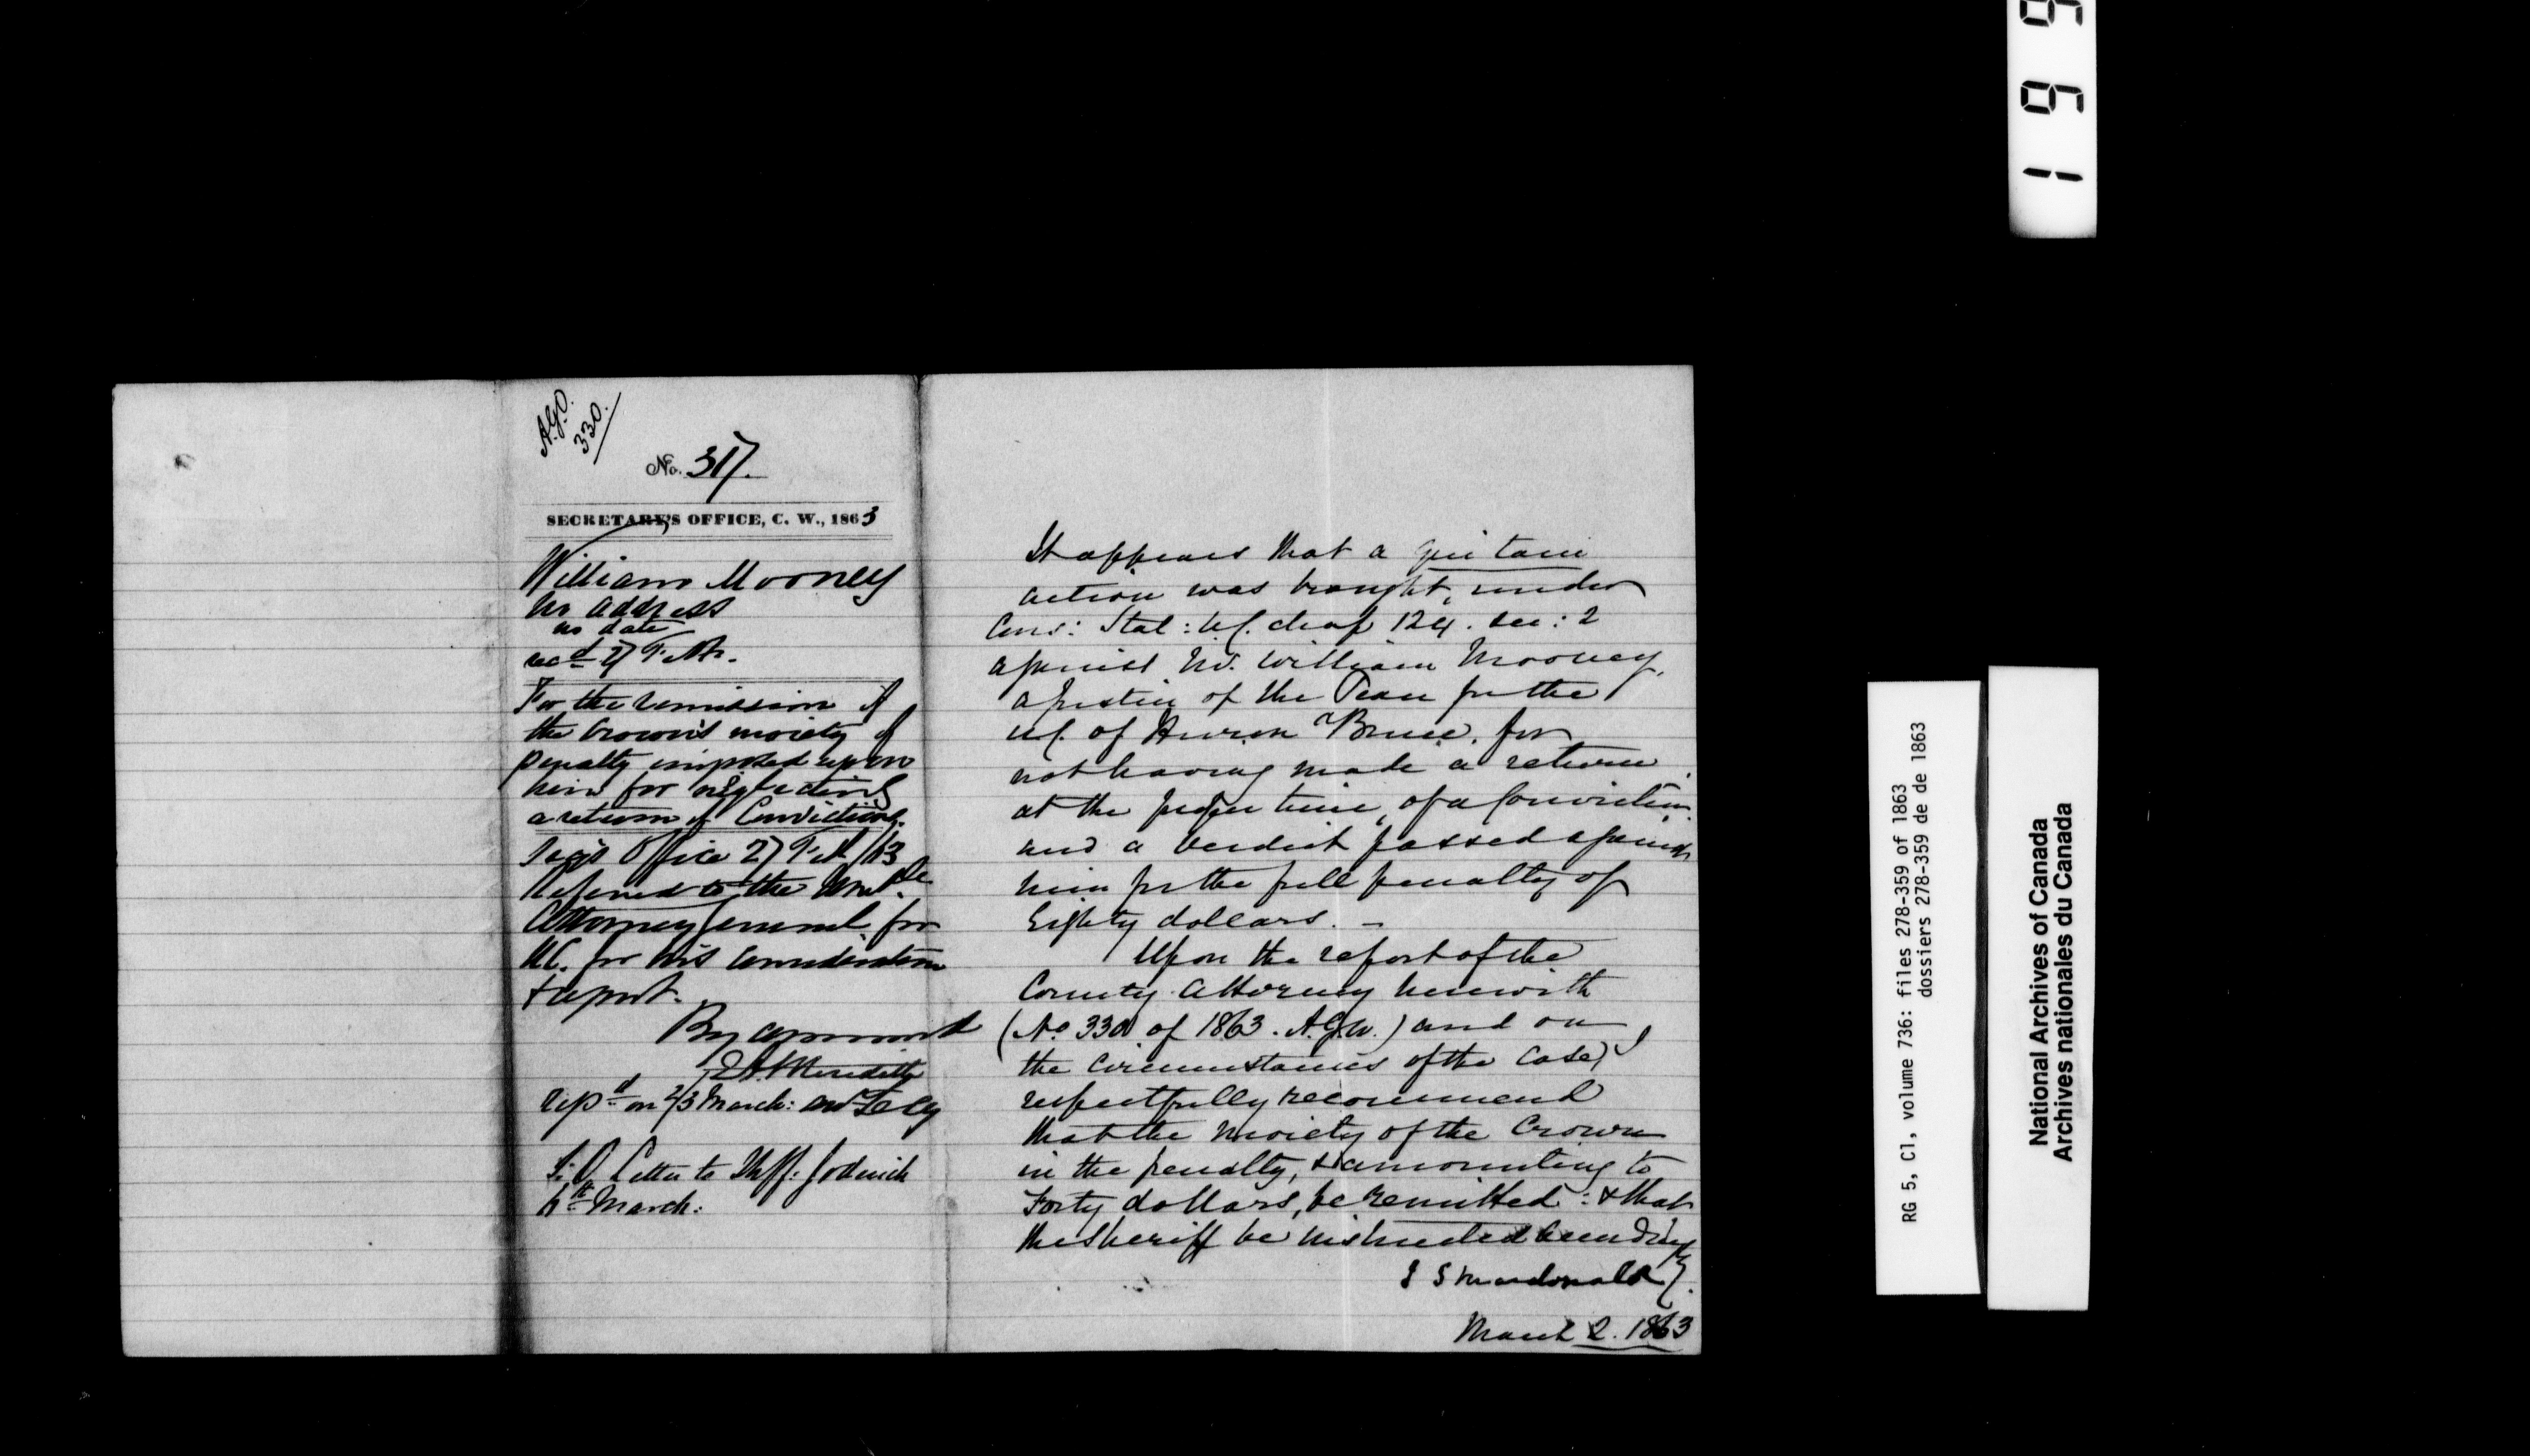 A.G.O.
330.
No. 317.
SECRETARY'S OFFICE, C. W., 1863
William Mooney
no address
no date
recd 27 Feb.
For the remission of
the Crown's moiety of
penalty imposed upon
him for neglecting
a return of Convictions.
Sec's Office 27 Feb/63
Referred to the Honble
Attorney General for
U.C. for his consideration
& report.
By command
E A Meredith
repd on 2/3 March:
S.O. Letter to Shff. Goderich
6th March:
It appears that a qui tam
action was brought, under
Cons: Stat: U.C. chap 124. sec: 2
against Mr. William Mooney,
a Justice of the Peace for the
U.C. of Huron & Bruce, for
not having made a return
at the proper time, of a Conviction
and a verdict passed against
him for the full penalty of
Eighty dollars. –
Upon the report of the
County Attorney herewith
(No 330 of 1863. A.G.W.) and on
the circumstances of the case, I
respectfully recommend
that the moiety of the Crown
in the penalty, & amounting to
Forty dollars, be remitted: & that
the Sheriff be instructed accordingly.
J S Macdonald
March 2. 1863
1 9 9
RG 5, C1, volume 736: files 278-359 of 1863
dossiers 278-359 de de 1863
National Archives of Canada
Archives nationales du Canada